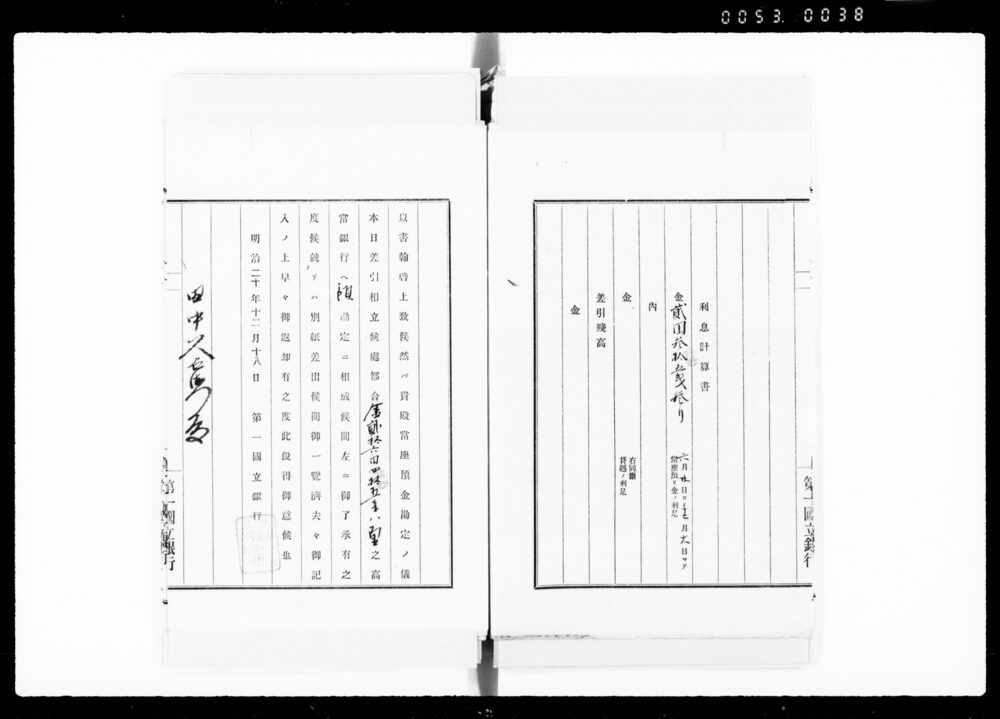 0053 0038
利息計算書
金貳円参拾五銭
六月 日ヨリ 月 日マデ
當座預リ金ノ利足
内
金
右同斷
貸越ノ利足
差引殘高
金
第一國立銀行
以書翰啓上致候然ハ貴殿當座預金勘定ノ儀
本日差引相立候處都合金貳拾六円四拾五銭八厘之高
當銀行ヘ預勘定ニ相成候間左ニ御了承有之
度候就テハ別紙差出候間御一覽濟夫々御記
入ノ上早々御返却有之度此段得御意候也
明治二十年十二月十八日 第一國立銀行
田中
第一國立銀行